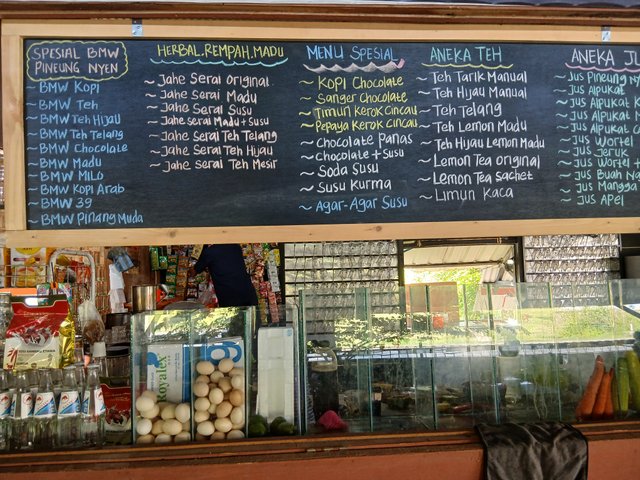 SPESIAL BMW
PINEUNG NYEN
~BMW KOPI
~BMW TEH
~BMW TEH HIJAU
~BMW TEH TELANG
~BMW CHOCOLATE
~BMW MADU
~BMW MILO
~BMW KOPI ARAB
~BMW 39
~BMW PINANG MUDA
HERBAL.REMPAH.MADU
~JAHE SERAI ORIGINAL
~JAHE SERAI MADU
~JAHE SERAI SUSU
~JAHE SERAI MADU + SUSU
~JAHE SERAI TEH TELANG
~JAHE SERAI TEH HIJAU
~JAHE SERAI TEH MESIR
MENU SPESIAL
~KOPI CHOCOLATE
~SANGER CHOCOLATE
~TIMUN KEROK CINCAU
~PEPAYA KEROK CINCAU
~CHOCOLATE PANAS
~CHOCOLATE + SUSU
~SODA SUSU
~SUSU KURMA
~AGAR-AGAR SUSU
ANEKA TEH
~TEH TARIK MANUAL
~TEH HIJAU MANUAL
~TEH TELANG
~TEH LEMON MADU
~TEH HIJAU LEMON MADU
~LEMON TEA ORIGINAL
~LEMON TEA SACHET
~LIMUN KACA
ANEKA JU
~JUS PINEUNG NY
~JUS ALPUKAT
~JUS ALPUKAT M
~JUS ALPUKAT
~JUS ALPUKAT
~JUS WORTEL
~JUS WORTEL +
~JUS JERUK
~JUS BUAH NA
~JUS MANGGA
~JUS APEL